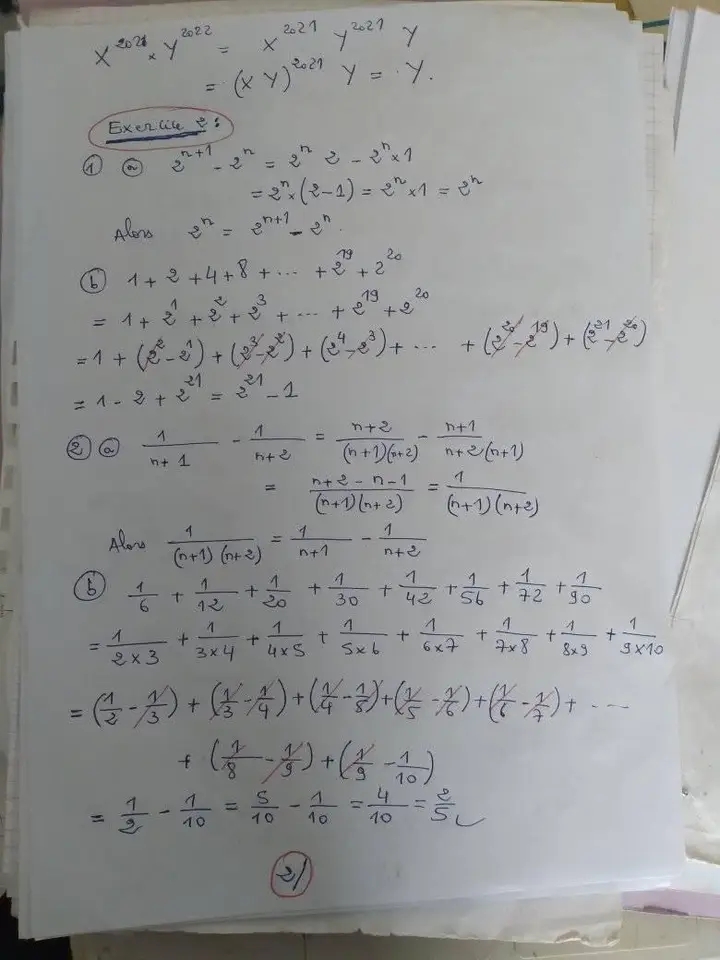 X^2021 × Y^2022 = X^2021 Y^2021 Y
= (X Y)^2021 Y = Y.
Exercice 2:
① ⓐ 2^(n+1) - 2^n = 2^n 2 - 2^n × 1
= 2^n × (2-1) = 2^n × 1 = 2^n
Alors 2^n = 2^(n+1) - 2^n.
ⓑ 1 + 2 + 4 + 8 + ... + 2^19 + 2^20
= 1 + 2^1 + 2^2 + 2^3 + ... + 2^19 + 2^20
= 1 + (2^2 - 2^1) + (2^3 - 2^2) + (2^4 - 2^3) + ... + (2^20 - 2^19) + (2^21 - 2^20)
= 1 - 2 + 2^21 = 2^21 - 1
② ⓐ 1/(n+1) - 1/(n+2) = (n+2)/((n+1)(n+2)) - (n+1)/(n+2(n+1))
= (n+2-n-1)/((n+1)(n+2)) = 1/((n+1)(n+2))
Alors 1/((n+1)(n+2)) = 1/(n+1) - 1/(n+2)
ⓑ 1/6 + 1/12 + 1/20 + 1/30 + 1/42 + 1/56 + 1/72 + 1/90
= 1/(2×3) + 1/(3×4) + 1/(4×5) + 1/(5×6) + 1/(6×7) + 1/(7×8) + 1/(8×9) + 1/(9×10)
= (1/2 - 1/3) + (1/3 - 1/4) + (1/4 - 1/5) + (1/5 - 1/6) + (1/6 - 1/7) + ...
+ (1/8 - 1/9) + (1/9 - 1/10)
= 1/2 - 1/10 = 5/10 - 1/10 = 4/10 = 2/5
2/